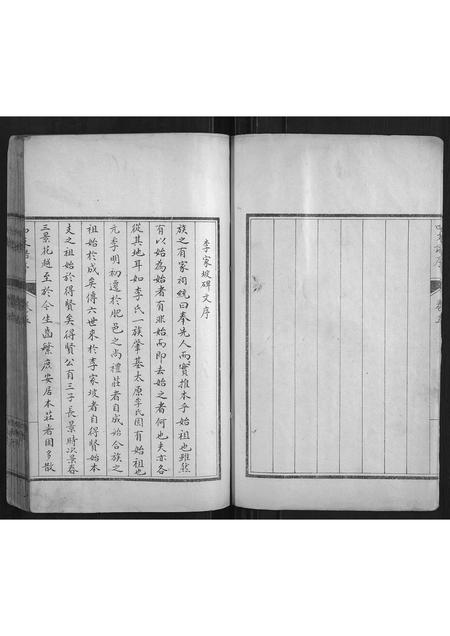 李家坡碑文序
族之有家祠統曰奉先人而實推本乎始祖也雖然
有以始為始者有非始而即去始之者何也夫亦各
從其地耳如李氏一族肇基太原李氏固有始祖也
元季明初遷於肥邑之尚禮莊者自成始合族之
祖始於成矣傳六世來於李家坡者自得賢始本
支之祖始於得賢矣得賢公有三子長景時次景春
三景花越至於今生齒繁庶安居本莊者固多散